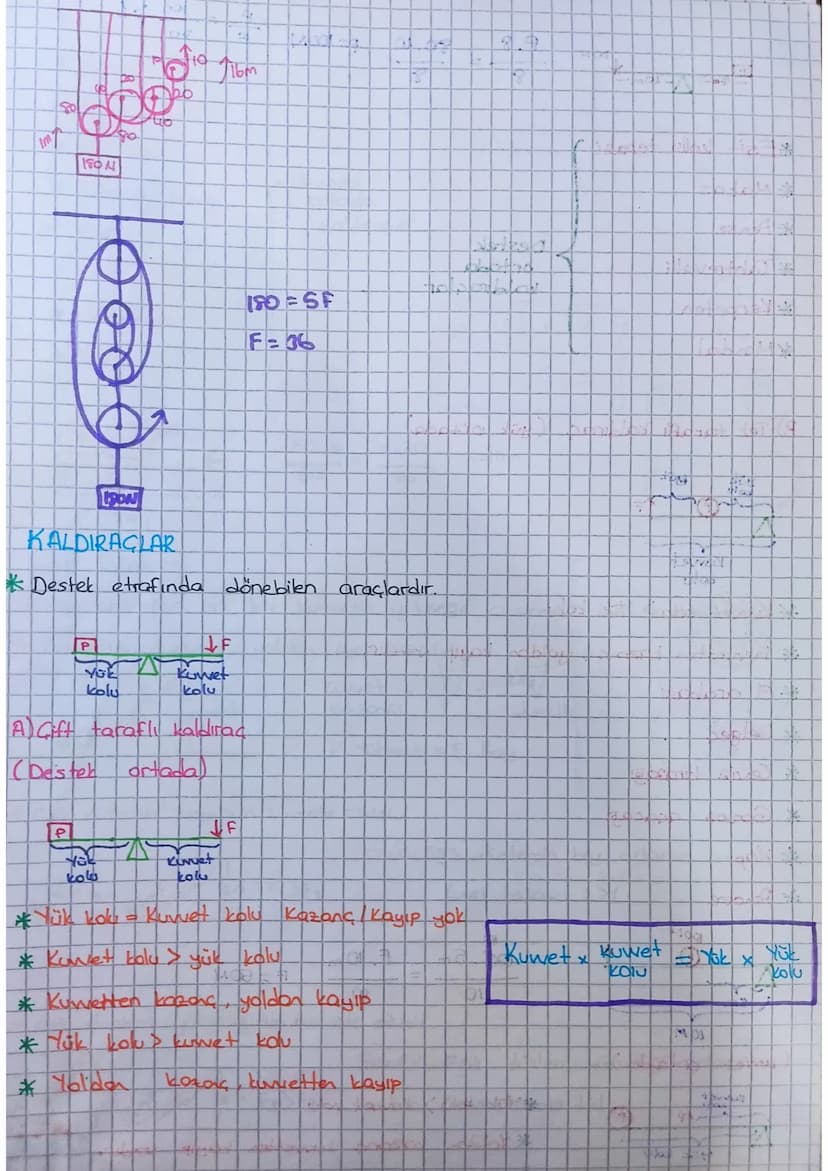 10
↑16m
20
20
40
80
80
1m↑
160N
180 = 5F
F = 36
180N
KALDIRAÇLAR
* Destek etrafında dönebilen araçlardır.
P
↓F
Yük kolu
Kuvvet kolu
A) Çift taraflı kaldıraç
(Destek ortada)
P
↓F
Yük kolu
Kuvvet kolu
* Yük kolu = Kuvvet kolu Kazanç/Kayıp yok
* Kuvvet kolu > yük kolu
Kuvvet x Kuvvet kolu = Yük x Yük kolu
* Kuvvetten kazanç, yoldan kayıp
* Yük kolu > kuvvet kolu
* Yoldan kazanç, kuvvetten kayıp